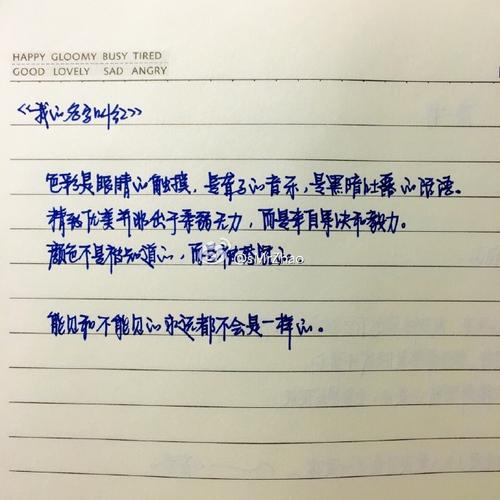 HAPPY GLOOMY BUSY TIRED
GOOD LOVELY SAD ANGRY
<<我的名字叫红>>
色彩是眼睛的触摸,是聋子的音乐,是黑暗吐露的话语。
精致优美并非出于柔弱无力,而是来自果决和毅力。
颜色不是被知道的,而
@sMrZhao
能见和不能见的永远都不会是一样的。